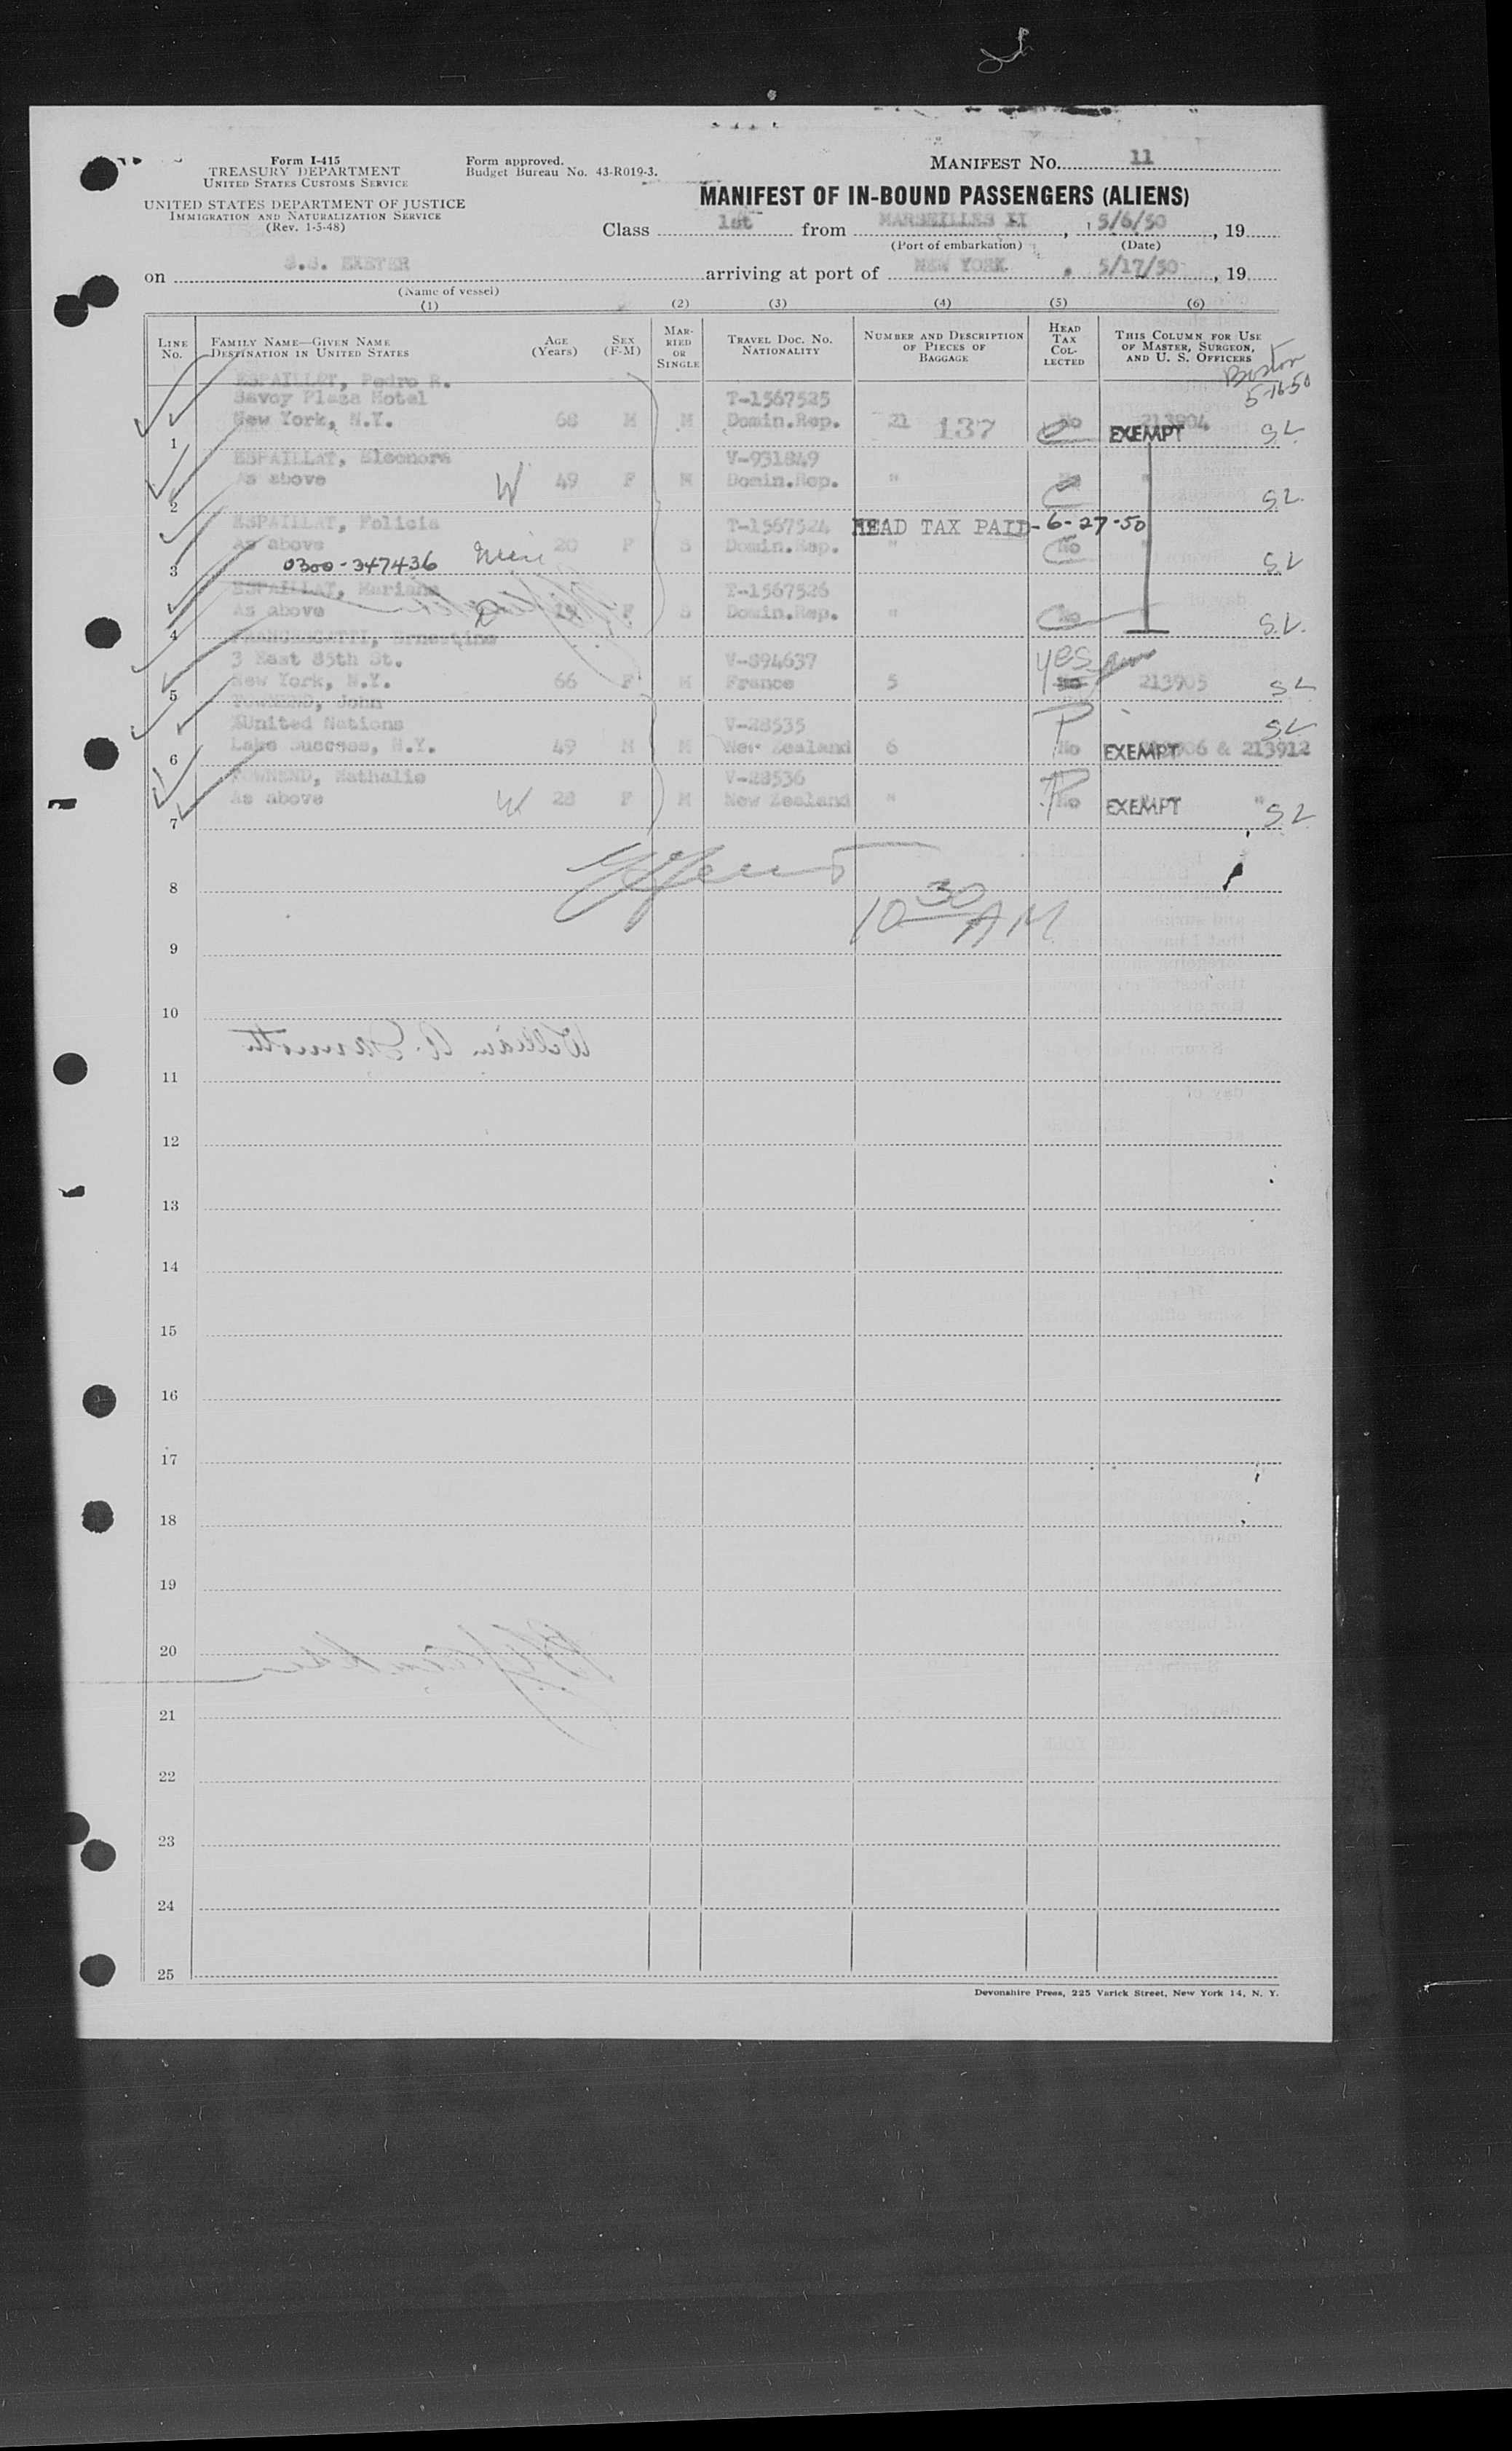 Form I-415
TREASURY DEPARTMENT
UNITED STATES CUSTOMS SERVICE
UNITED STATES DEPARTMENT OF JUSTICE
IMMIGRATION AND NATURALIZATION SERVICE
(Rev. 1-5-48)
Form approved.
Budget Bureau No. 43-R019-3.
MANIFEST No. 11
MANIFEST OF IN-BOUND PASSENGERS (ALIENS)
Class 1st from MARSEILLES, 5/6/50, 19
(Port of embarkation) (Date)
on S.S. EXETER arriving at port of NEW YORK, 5/17/50, 19
(Name of vessel)
(1) (2) (3) (4) (5) (6)
LINE No.
FAMILY NAME—GIVEN NAME
DESTINATION IN UNITED STATES
AGE (Years)
SEX (F-M)
MARRIED OR SINGLE
TRAVEL DOC. No. NATIONALITY
NUMBER AND DESCRIPTION OF PIECES OF BAGGAGE
HEAD TAX COLLECTED
THIS COLUMN FOR USE OF MASTER, SURGEON, AND U. S. OFFICERS
Boston
5-16-50
ESPAILLAT, Pedro R.
Savoy Plaza Hotel T-1567525
1 New York, N.Y. 68 M M Domin.Rep. 21 137 No EXEMPT 213904 SL
ESPAILLAT, Eleonora V-931849
2 As above W 49 F M Domin.Rep. " " SL
ESPAILLAT, Felicia T-1567524 HEAD TAX PAID-6-27-50
As above 20 F S Domin.Rep. " No
3 0300-347436 SL
ESPAILLAT, Mariana T-1567526
4 As above F S Domin.Rep. " No SL
Ernestine
3 East 85th St. V-894637 yes
5 New York, N.Y. 66 F M France 5 No 213905 SL
TOWNEND, John
United Nations V-28535 P SL
6 Lake Success, N.Y. 49 M M New Zealand 6 No EXEMPT & 213912
TOWNEND, Nathalie V-28536 P
7 As above W 28 F M New Zealand " No EXEMPT " SL
8
10 30 AM
9
10
11
12
13
14
15
16
17
18
19
20
21
22
23
24
25
Devonshire Press, 225 Varick Street, New York 14, N. Y.